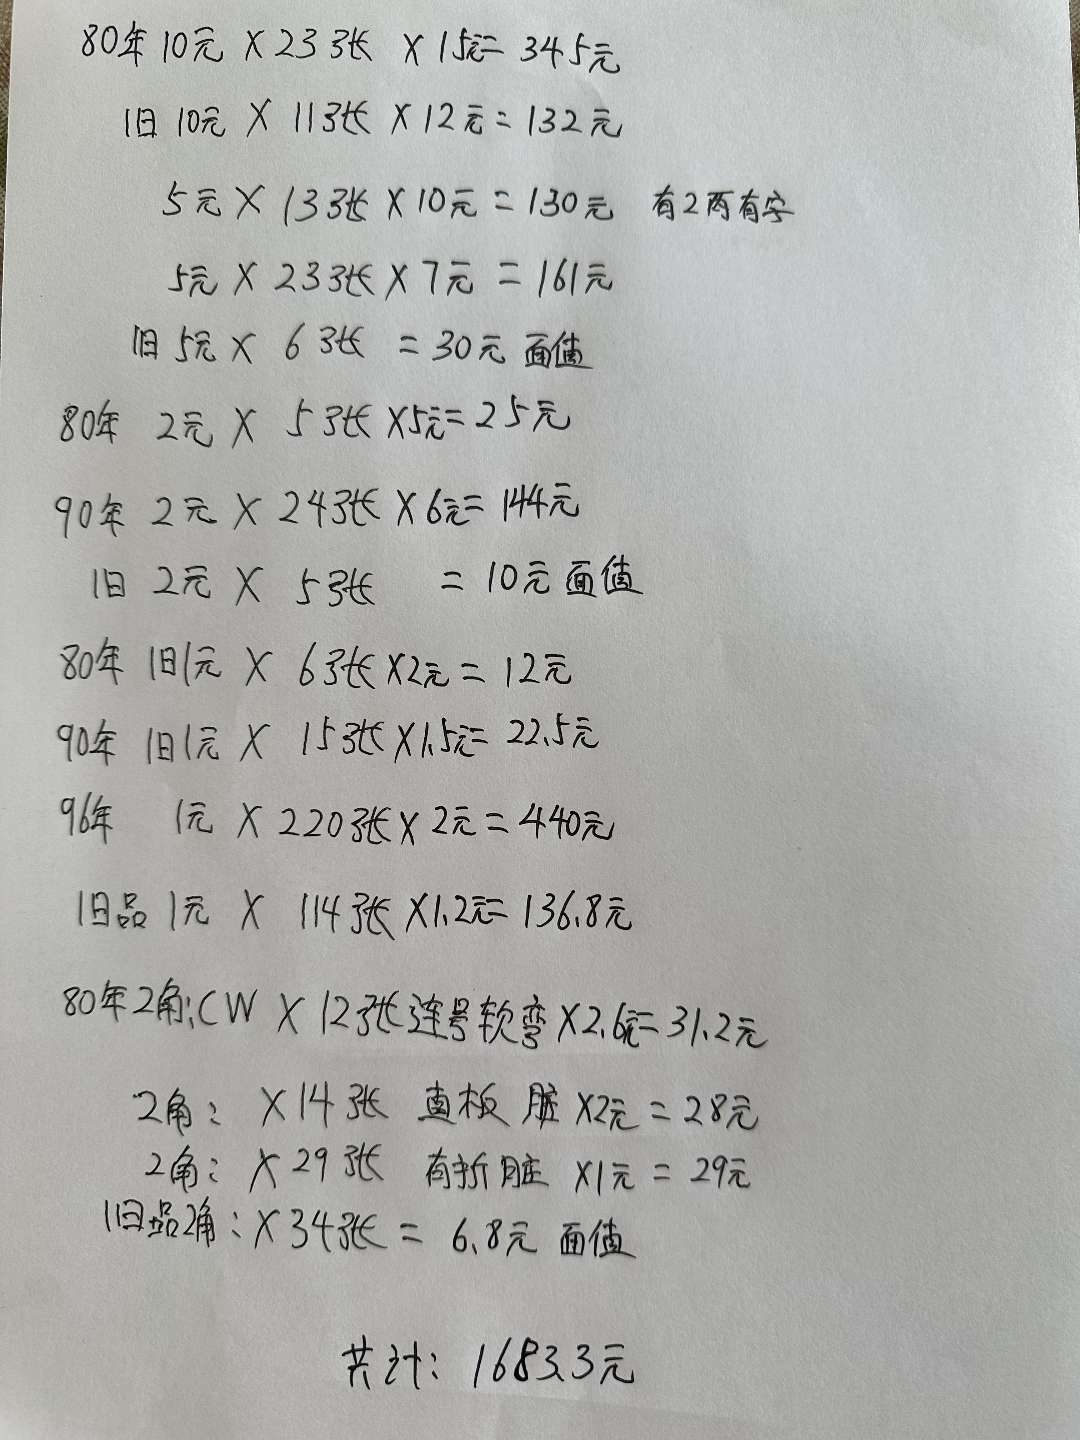 80年 10元 × 23张 × 15元 = 345元
旧 10元 × 11张 × 12元 = 132元
5元 × 13张 × 10元 = 130元 有2两有字
5元 × 23张 × 7元 = 161元
旧 5元 × 6张 = 30元 面值
80年 2元 × 5张 × 5元 = 25元
90年 2元 × 24张 × 6元 = 144元
旧 2元 × 5张 = 10元 面值
80年 旧1元 × 6张 × 2元 = 12元
90年 旧1元 × 15张 × 1.5元 = 22.5元
96年 1元 × 220张 × 2元 = 440元
旧品 1元 × 114张 × 1.2元 = 136.8元
80年2角: CW × 12张 连号软弯 × 2.6元 = 31.2元
2角: × 14张 直板 脏 × 2元 = 28元
2角: × 29张 有折脏 × 1元 = 29元
旧品2角: × 34张 = 6.8元 面值
共计: 1683.3元